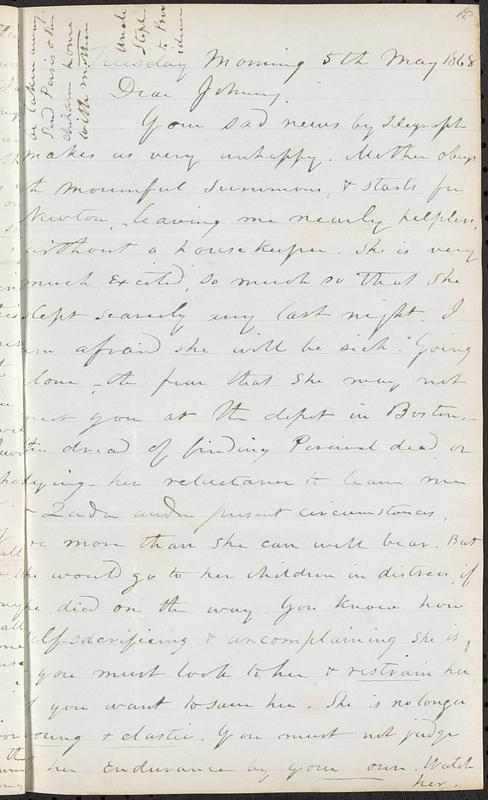 Tuesday Morning 5th May 1868
Dear Johnny.
Your sad news by Telegraph
makes us very unhappy. Mother obeys
th mournful summons, & starts for
Newton,- leaving me nearly helpless,
without a housekeeper. She is very
much excited, so much so that she
slept scarcely any last night. I
am afraid she will be sick. Going
alone - the fear that she may not
meet you at the depot in Boston -
the dread of finding Percival dead or
dying - her reluctance to leave me
& Zada under present circumstances,
are more than she can well bear. But
she would go to her children in distress, if
she died on the way. You know how
self-sacrificing & uncomplaining she is,
you must look to her, & restrain her
if you want to save her. She is no longer
young & elastic. You must not judge
of her endurance by your own. Watch
her.
be taken away.
Send Paris & the
children home
with mother
Uncle
Steph.
to Prov
idence